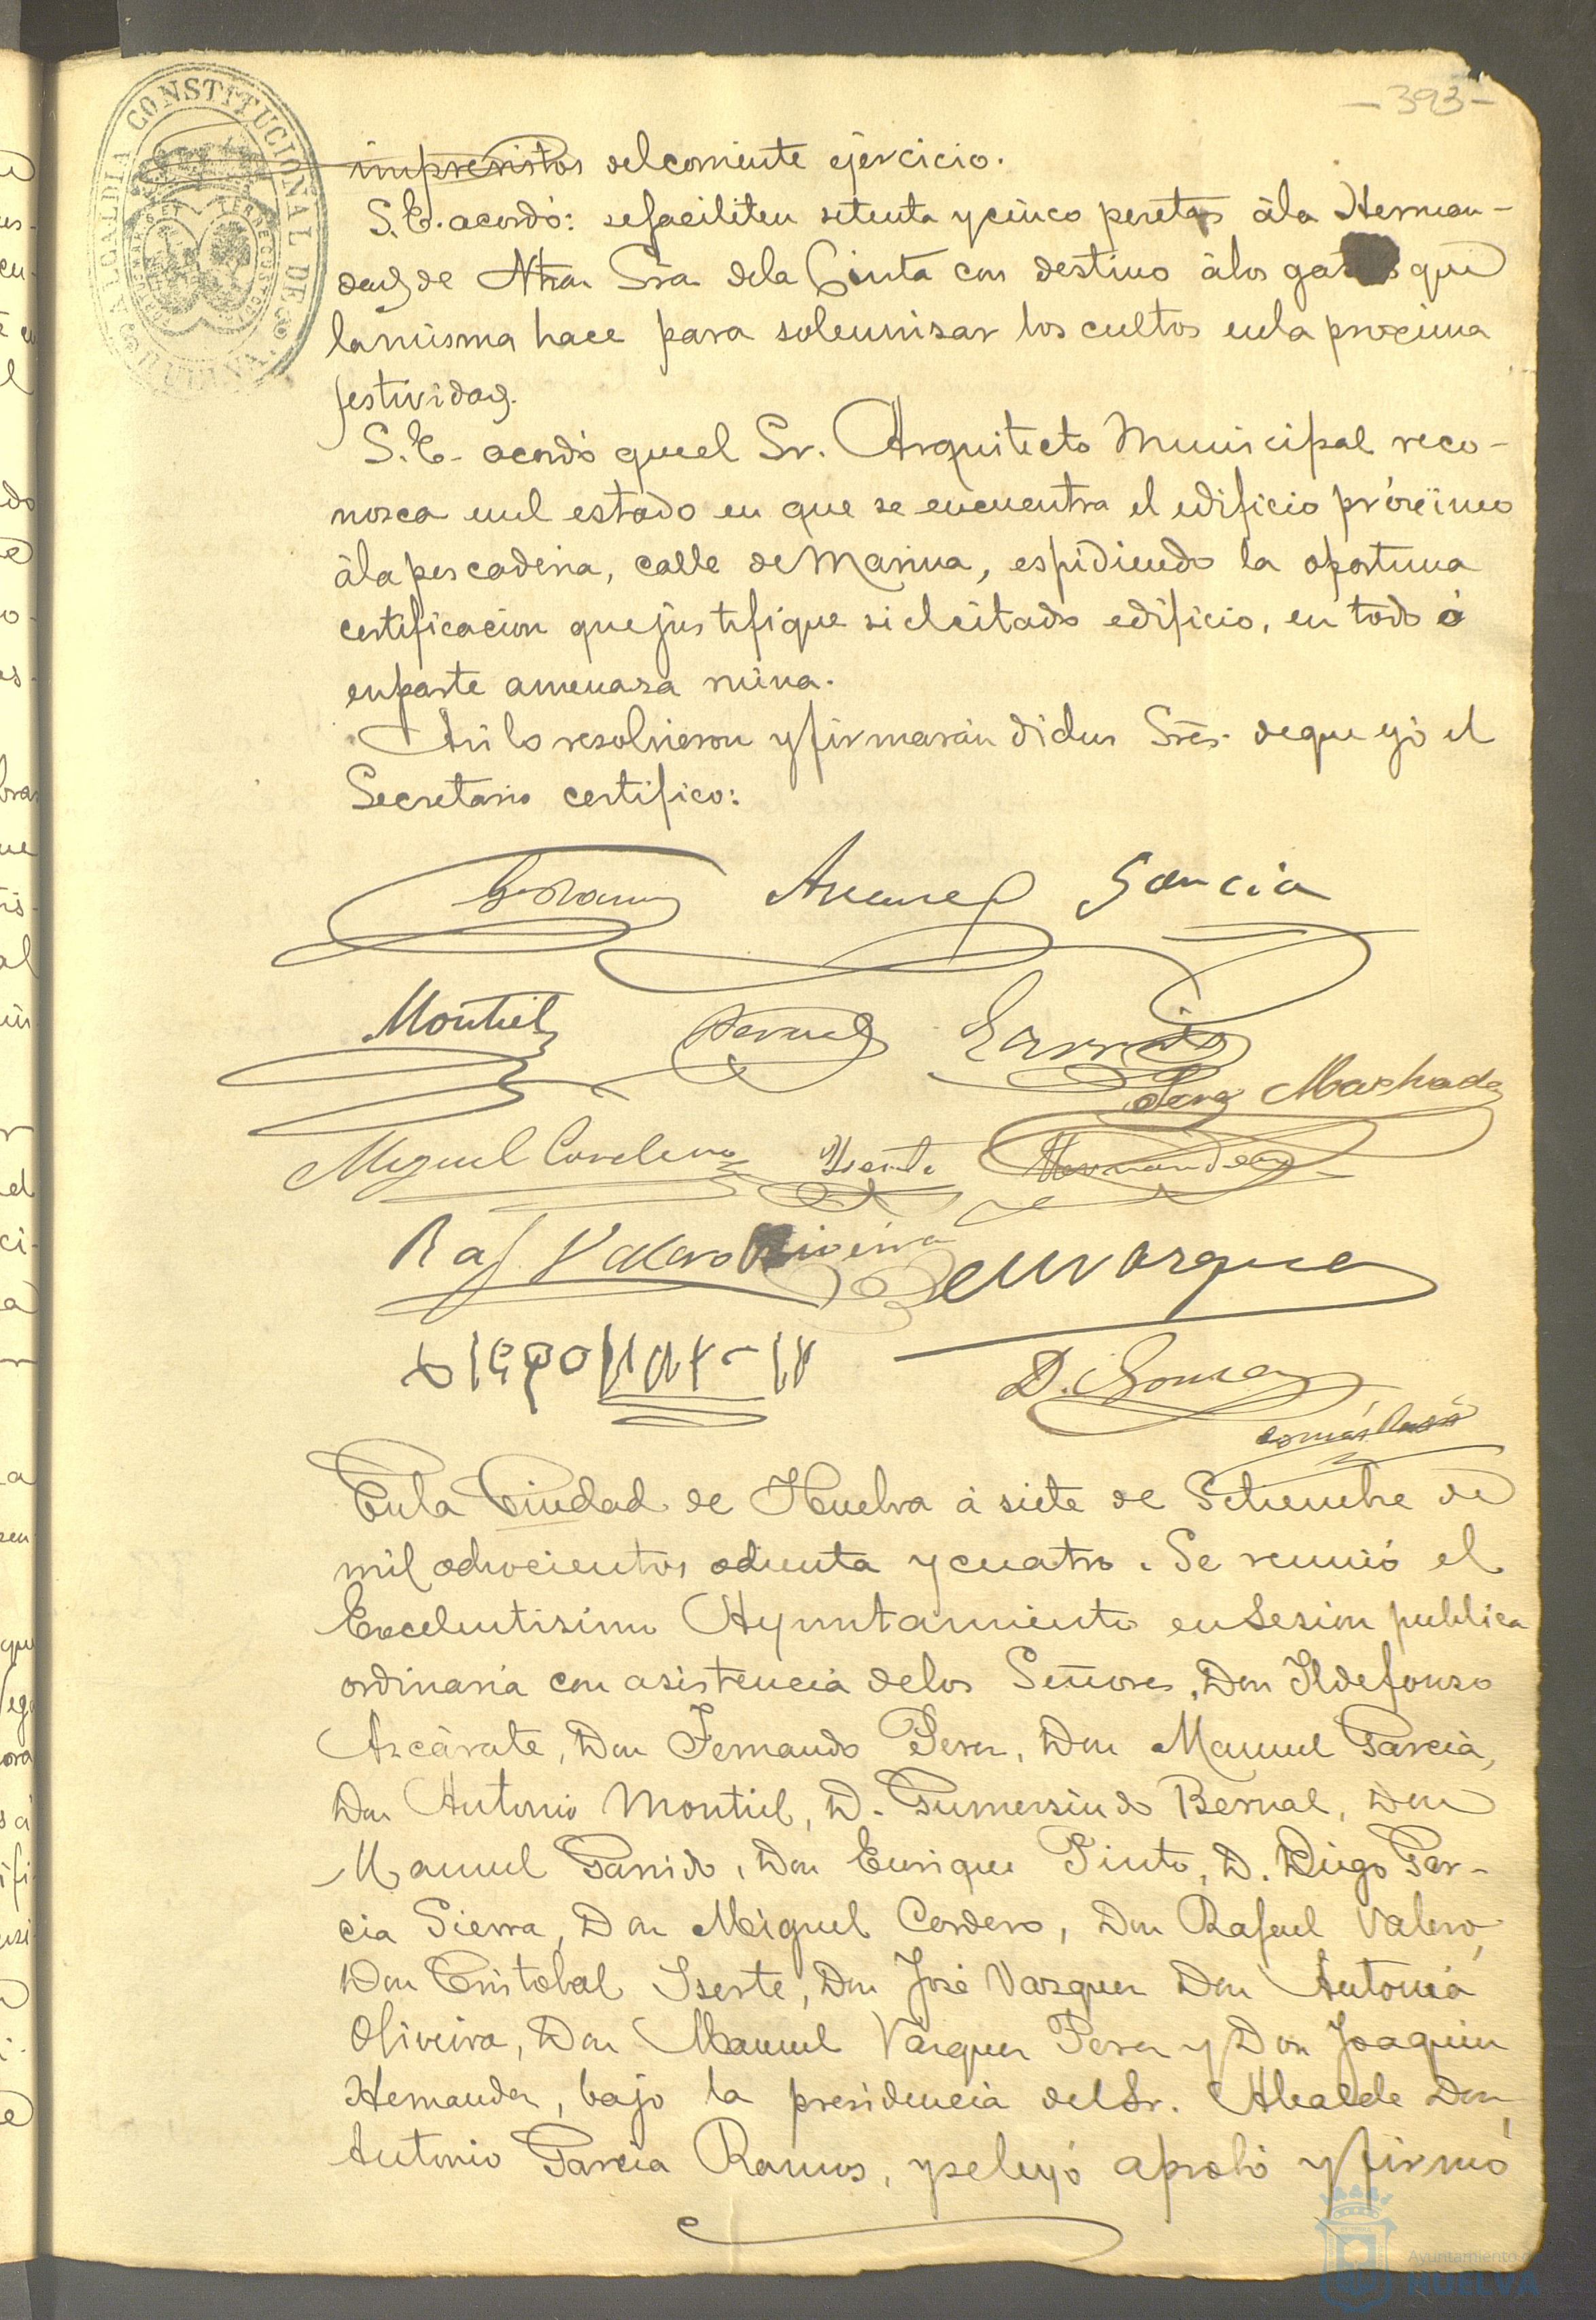 -393-
ALCALDIA CONSTITUCIONAL DE HUELVA
imprevistos del corriente ejercicio.
S.E. acordó: se faciliten setenta y cinco pesetas à la Herman-
dad de Ntra Sra de la Cinta con destino à los gastos que
la misma hace para solemnisar los cultos en la proxima
festividad.
S.E. acordó que el Sr. Arquitecto Municipal reco-
nosca en el estado en que se encuentra el edificio próximo
à la pescaderia, calle de Marina, espidiendo la oportuna
certificacion que justifique si el citado edificio, en todo ó
en parte amenasa ruina.
Asi lo resolvieron y firmarán dichos Sres. de que yó el
Secretario certifico:
G. Ramos Azcarate Garcia
Montiel Bernal Garrido
Perez Machado
Miguel Cordero Iserte Hernandez
Raf. Valero Oliveira M Vazquez
Diego Garcia
D. Gomez
Tomás
En la Ciudad de Huelva à siete de Setiembre de
mil ochocientos ochenta y cuatro. Se reunió el
Excelentisimo Ayuntamiento en Sesion publica
ordinaria con asistencia de los Señores, Don Ildefonso
Azcárate, Don Fernando Perez, Don Manuel Garcia,
Don Antonio Montiel, D. Gumersindo Bernal, Don
Manuel Garrido, Don Enrique Pinto, D. Diego Gar-
cia Sierra, Don Miguel Cordero, Don Rafael Valero,
Don Cristobal Iserte, Don José Vazquez Don Antonio
Oliveira, Don Manuel Vazquez Perez y Don Joaquin
Hernandez, bajo la presidencia del Sr. Alcalde Don
Antonio Garcia Ramos, y se leyó aprobó y firmó
Ayuntamiento
HUELVA